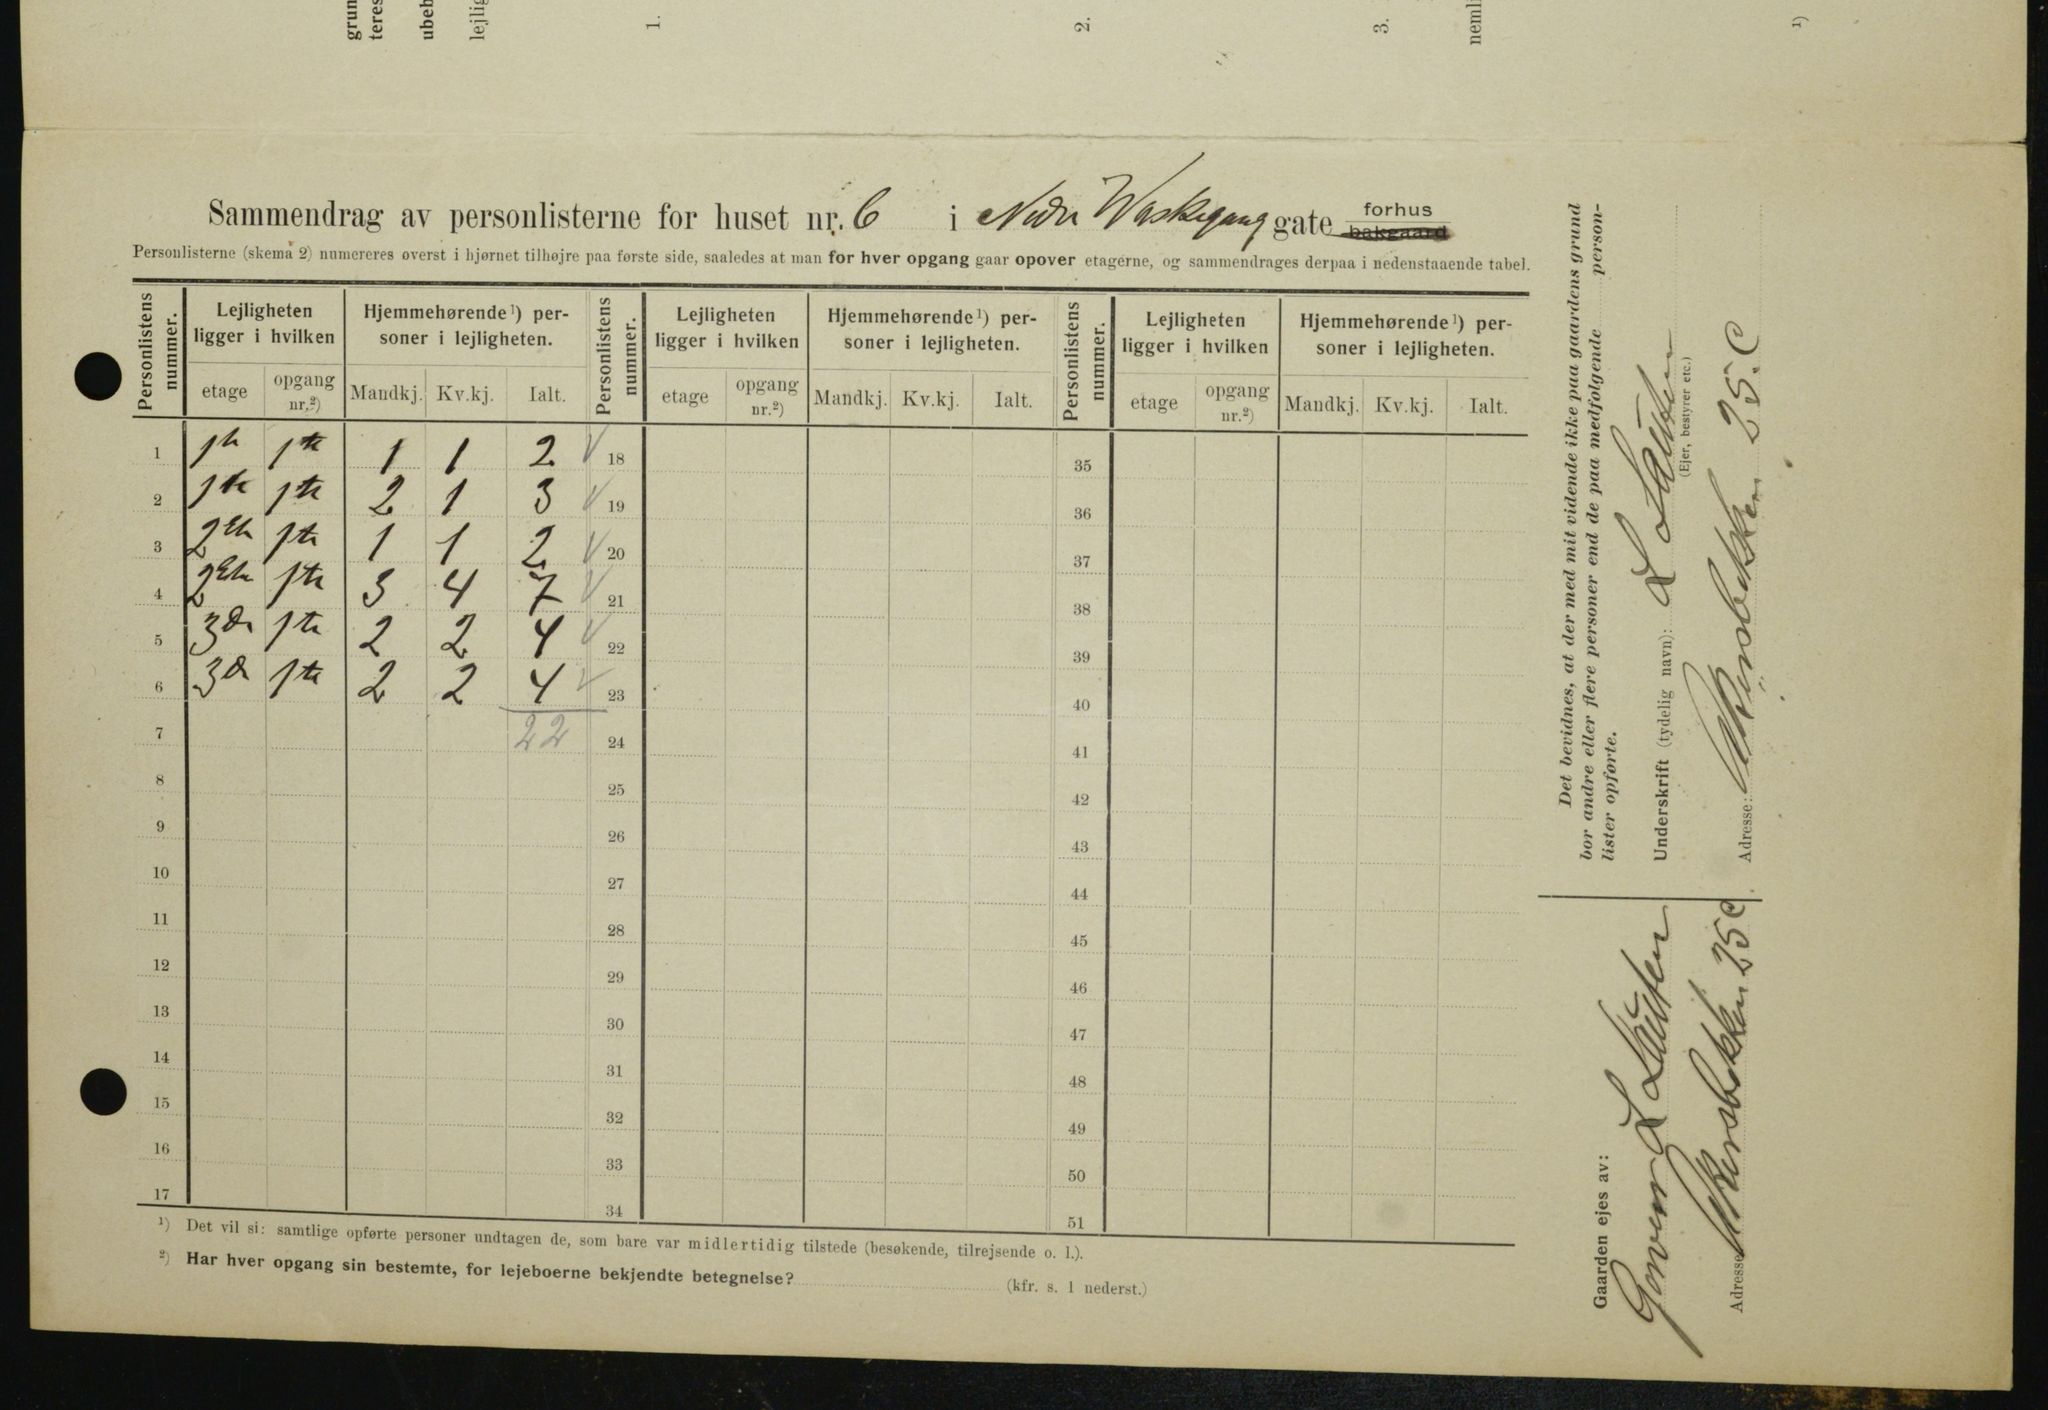 grun
teres
ubeb
lejlig
1.
2.
3.
nemli
1)
Sammendrag av personlisterne for huset nr. 6 i Nedre Waskegang gate forhus bakgaard
Personlisterne (skema 2) numereres øverst i hjørnet tilhøjre paa første side, saaledes at man for hver opgang gaar opover etagerne, og sammendrages derpaa i nedenstaaende tabel.
Personlistens nummer. Lejligheten ligger i hvilken Hjemmehørende 1) personer i lejligheten. Personlistens nummer. Lejligheten ligger i hvilken Hjemmehørende 1) personer i lejligheten. Personlistens nummer. Lejligheten ligger i hvilken Hjemmehørende 1) personer i lejligheten.
etage opgang nr.2) Mandkj. Kv.kj. Ialt. etage opgang nr.2) Mandkj. Kv.kj. Ialt. etage opgang nr.2) Mandkj. Kv.kj. Ialt.
1 1te 1te 1 1 2 18 35
2 1te 1te 2 1 3 19 36
3 2Etn 1te 1 1 2 20 37
4 2Etn 1te 3 4 7 21 38
5 3de 1te 2 2 4 22 39
6 3de 1te 2 2 4 23 40
7 22 24 41
8 25 42
9 26 43
10 27 44
11 28 45
12 29 46
13 30 47
14 31 48
15 32 49
16 33 50
17 34 51
1) Det vil si: samtlige opførte personer undtagen de, som bare var midlertidig tilstede (besøkende, tilrejsende o. l.).
2) Har hver opgang sin bestemte, for lejeboerne bekjendte betegnelse? (kfr. s. 1 nederst.)
Det bevidnes, at der med mit vidende ikke paa gaardens grund
bor andre eller flere personer end de paa medfølgende person-
lister opførte.
Underskrift (tydelig navn): L Lauten
(Ejer, bestyrer etc.)
Adresse: Akersbakken 25. C
Gaarden ejes av:
L Lauten
Adresse Akersbakken 25 C